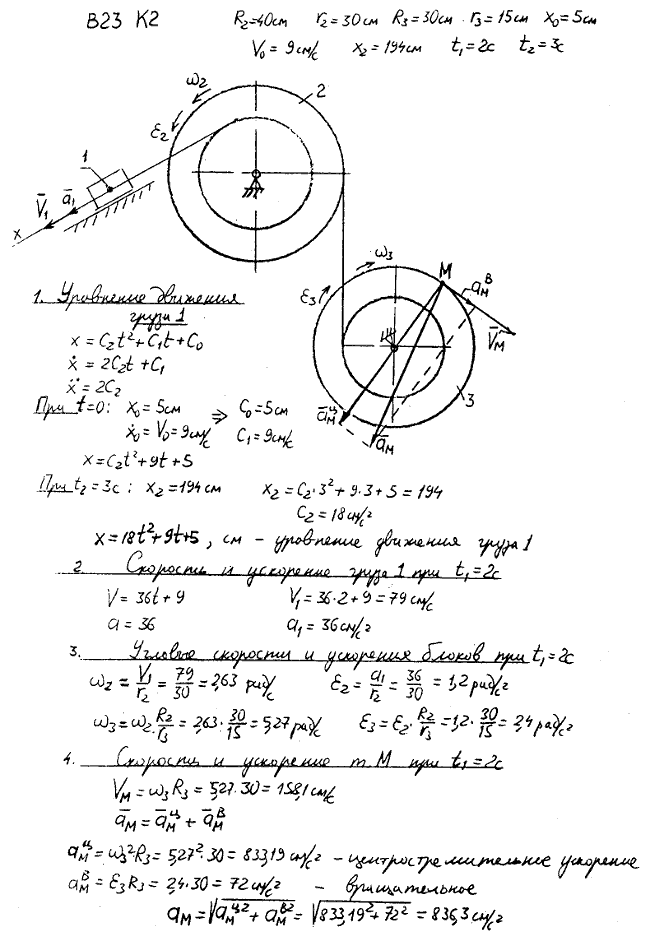 В23 К2 R₂=40см r₂=30см R₃=30см r₃=15см x₀=5см
V₀=9см/с x₂=194см t₁=2с t₂=3с
ω₂
2
ε₂
1
V̄₁ ā₁
x
ω₃
M
ε₃
ā_M^В
V̄_M
3
ā_M^Ц
ā_M
1. Уровнение движения
груза 1
x = C₂t²+C₁t+C₀
ẋ = 2C₂t+C₁
ẍ = 2C₂
При t=0: x₀=5см ⇒ C₀=5см
ẋ₀=V₀=9см/с C₁=9см/с
x=C₂t²+9t+5
При t₂=3с: x₂=194см x₂=C₂·3²+9·3+5=194
C₂=18см/с²
x=18t²+9t+5, см – уровнение движения груза 1
2. Скорость и ускорение груза 1 при t₁=2с
V=36t+9 V₁=36·2+9=79см/с
a=36 a₁=36см/с²
3. Угловые скорости и ускорения блоков при t₁=2с
ω₂=V₁/r₂=79/30=2,63 рад/с ε₂=a₁/r₂=36/30=1,2рад/с²
ω₃=ω₂·R₂/r₃=2,63·30/15=5,27рад/с ε₃=ε₂·R₂/r₃=1,2·30/15=2,4рад/с²
4. Скорость и ускорение т.М при t₁=2с
V_M=ω₃R₃=5,27·30=158,1см/с
ā_M=ā_M^Ц+ā_M^В
a_M^Ц=ω₃²R₃=5,27²·30=833,19см/с² – центростремительное ускорение
a_M^В=ε₃R₃=2,4·30=72см/с² – вращательное
a_M=√(a_M^Ц²+a_M^В²)=√(833,19²+72²)=836,3см/с²